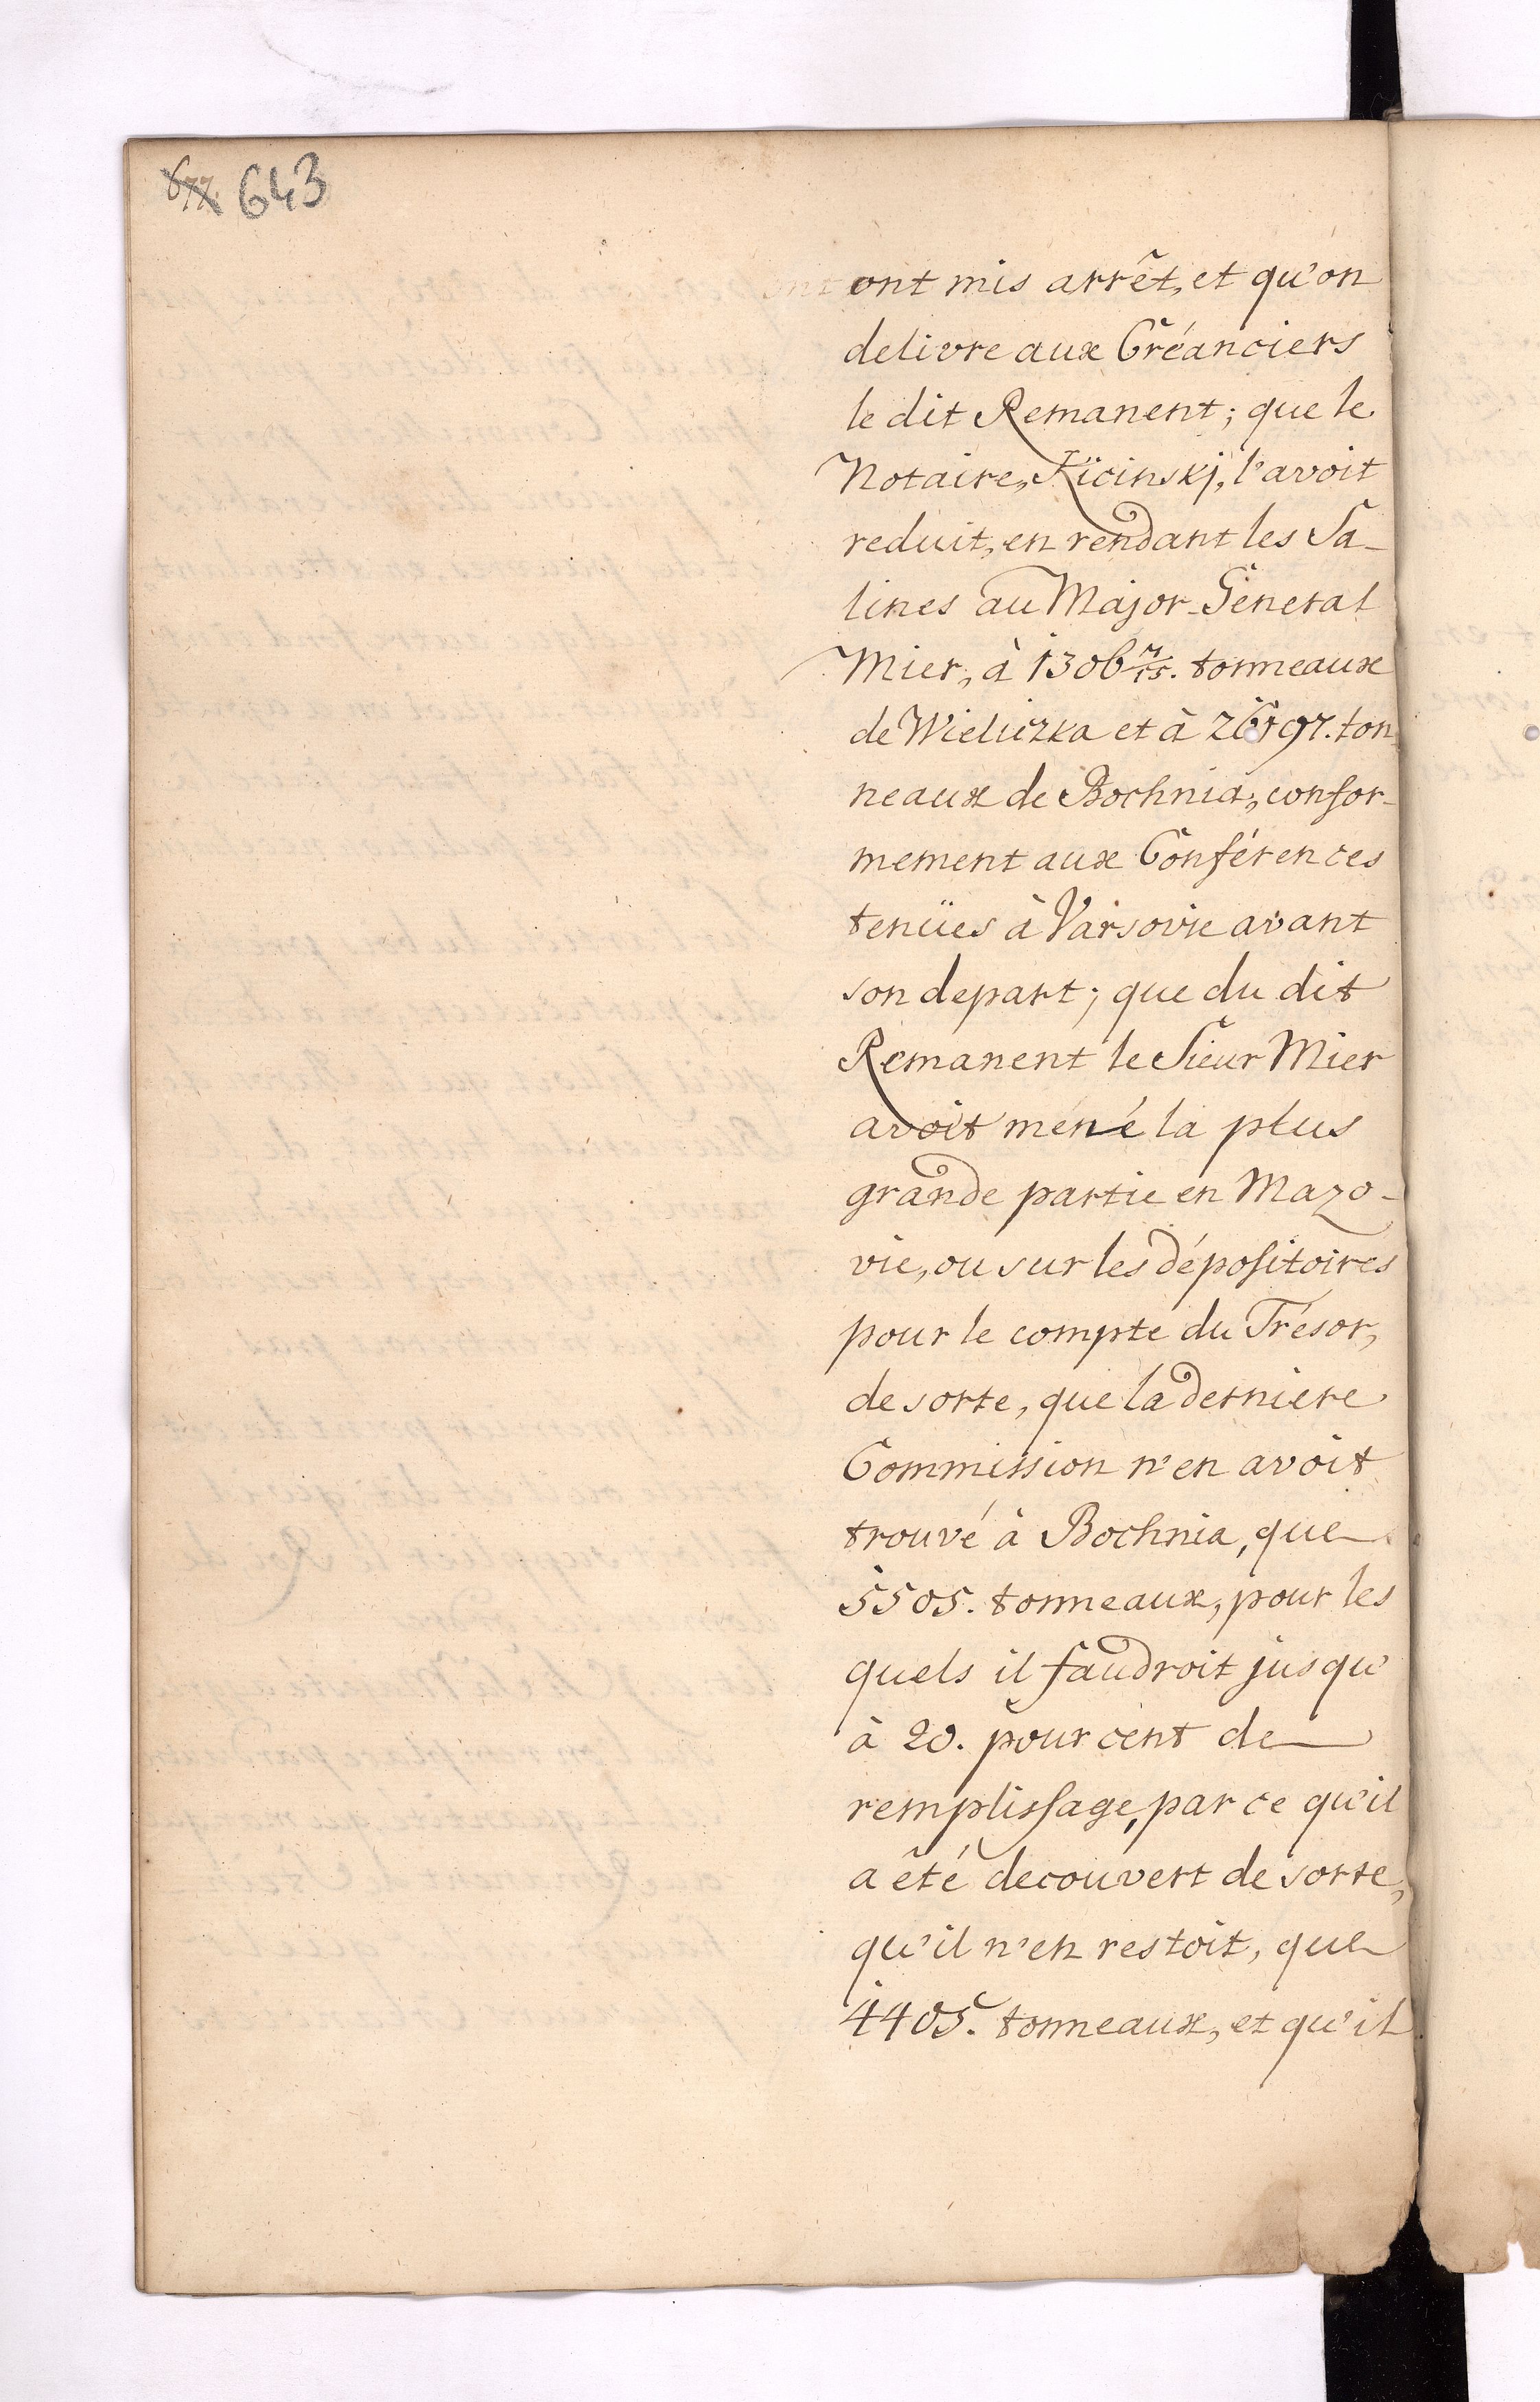 643
ont mis arrêt, et qu'on
delivre aux Créanciers
le dit Remanent; que le
Notaire, Kicinskj, l'avoit
reduit, en rendant les Sa-
lines au Major-General
Mier, à 1306 7/15. tonneaux
de Wieliczka et à ton
neaux de Bochnia, confor-
mement aux Conférences
tenües à Varsovie avant
son depart; que du dit
Remanent le Sieur Mier
avoit mené la plus
grande partie en Mazo-
vie, ou sur les dépositoires
pour le compte du Trésor,
de sorte, que la derniere
Commission n'en avoit
trouvé à Bochnia, que
5505. tonneaux, pour les
quels il faudroit jusqu'
à 20. pour cent de
remplissage, par ce qu'il
a êté decouvert de sorte,
qu'il n'en restoit, que
4405. tonneaux, et qu'il